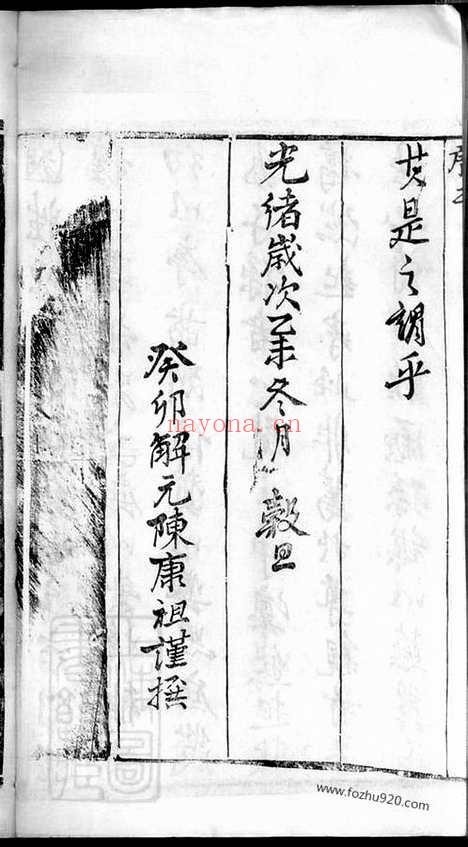 其是之謂乎
光緒歲次乙未冬月 穀旦
癸卯解元陳康祖謹撰
nayona.cn
www.fozhu920.com